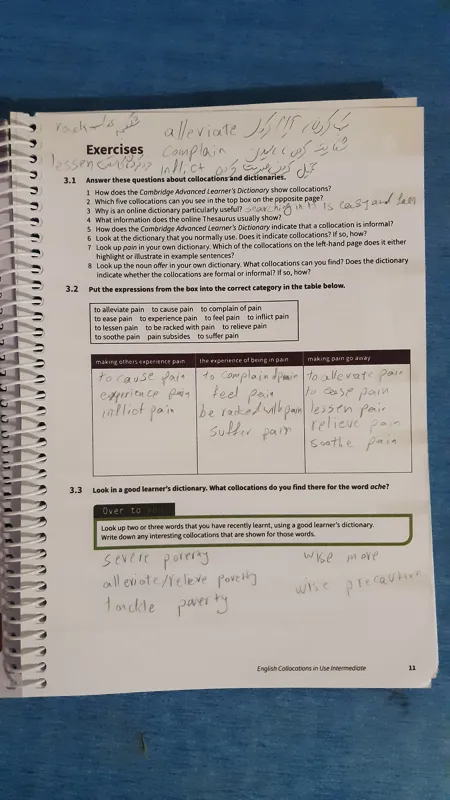 rack شکنجه، عذاب alleviate سبک کردن، آرام کردن
Exercises complain شکایت کردن، نالیدن
lessen inflict تحمیل کردن، ضربت زدن
3.1 Answer these questions about collocations and dictionaries.
1 How does the Cambridge Advanced Learner's Dictionary show collocations?
2 Which five collocations can you see in the top box on the opposite page?
3 Why is an online dictionary particularly useful? searching in it is easy and
4 What information does the online Thesaurus usually show?
5 How does the Cambridge Advanced Learner's Dictionary indicate that a collocation is informal?
6 Look at the dictionary that you normally use. Does it indicate collocations? If so, how?
7 Look up pain in your own dictionary. Which of the collocations on the left-hand page does it either
highlight or illustrate in example sentences?
8 Look up the noun offer in your own dictionary. What collocations can you find? Does the dictionary
indicate whether the collocations are formal or informal? If so, how?
3.2 Put the expressions from the box into the correct category in the table below.
to alleviate pain to cause pain to complain of pain
to ease pain to experience pain to feel pain to inflict pain
to lessen pain to be racked with pain to relieve pain
to soothe pain pain subsides to suffer pain
making others experience pain the experience of being in pain making pain go away
to cause pain to complain of pain to alleviate pain
experience pain feel pain to ease pain
inflict pain be racked with pain lessen pain
suffer pain relieve pain
soothe pain
3.3 Look in a good learner's dictionary. What collocations do you find there for the word ache?
Over to you
Look up two or three words that you have recently learnt, using a good learner's dictionary.
Write down any interesting collocations that are shown for those words.
severe poverty wise move
alleviate/relieve poverty wise precaution
tackle poverty
English Collocations in Use Intermediate 11